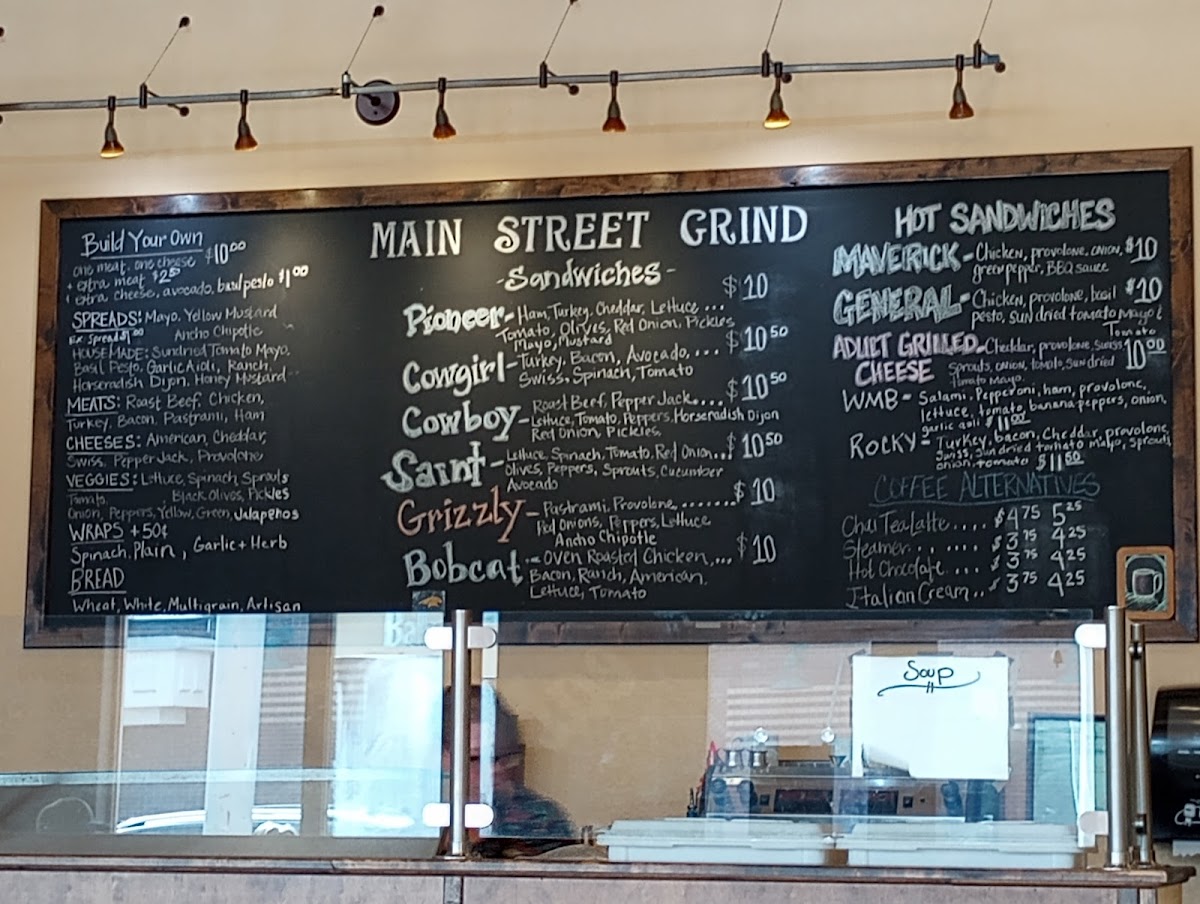 Build Your Own
one meat, one cheese $10⁰⁰
+ extra meat $2⁵⁰
+ extra cheese, avocado, basil pesto $1⁰⁰
SPREADS: Mayo, Yellow Mustard
Ex Spread $1⁰⁰ Ancho Chipotle
HOUSEMADE: Sundried Tomato Mayo,
Basil Pesto, Garlic Aioli, Ranch,
Horseradish Dijon, Honey Mustard
MEATS: Roast Beef, Chicken,
Turkey, Bacon, Pastrami, Ham
CHEESES: American, Cheddar,
Swiss, Pepper Jack, Provolone
VEGGIES: Lettuce, Spinach, Sprouts
Tomato, Black Olives, Pickles
Onion, Peppers, Yellow, Green, Jalapeños
WRAPS +50¢
Spinach, Plain, Garlic + Herb
BREAD
Wheat, White, Multigrain, Artisan
MAIN STREET GRIND
-Sandwiches-
Pioneer- Ham, Turkey, Cheddar, Lettuce ... $10
Tomato, Olives, Red Onion, Pickles
Mayo, Mustard
Cowgirl- Turkey, Bacon, Avocado, ... $10⁵⁰
Swiss, Spinach, Tomato
Cowboy- Roast Beef, Pepper Jack.... $10⁵⁰
Lettuce, Tomato, Peppers, Horseradish Dijon
Red Onion, Pickles
Saint- Lettuce, Spinach, Tomato, Red Onion... $10⁵⁰
Olives, Peppers, Sprouts, Cucumber
Avocado
Grizzly- Pastrami, Provolone........ $10
Red Onions, Peppers, Lettuce
Ancho Chipotle
Bobcat- Oven Roasted Chicken,... $10
Bacon, Ranch, American,
Lettuce, Tomato
HOT SANDWICHES
MAVERICK- Chicken, provolone, onion, $10
green pepper, BBQ sauce
GENERAL- Chicken, provolone, basil $10
pesto, sundried tomato Mayo &
Tomato
ADULT GRILLED CHEESE- Cheddar, provolone, swiss 10⁰⁰
Sprouts, onion, tomato, sundried
Tomato Mayo
WMB- Salami, Pepperoni, ham, provolone,
lettuce, tomato, banana peppers, onion,
garlic aoli $11⁰⁰
ROCKY- Turkey, bacon, Cheddar, provolone,
sundried tomato mayo, sprouts
onion, tomato $11⁵⁰
COFFEE ALTERNATIVES
Chai Tea Latte.... $4⁷⁵ 5²⁵
Steamer....... $3⁷⁵ 4²⁵
Hot Chocolate.... $3⁷⁵ 4²⁵
Italian Cream.. $3⁷⁵ 4²⁵
Soup